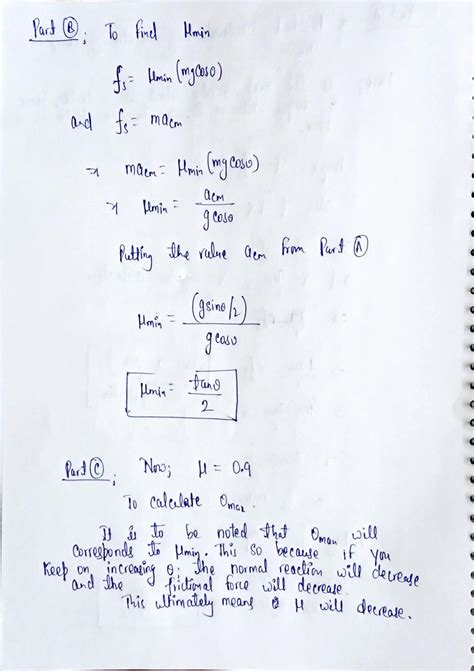 Part (B); To find μmin
fs = μmin (mgcosθ)
and fs = macm
⇒ macm = μmin (mgcosθ)
⇒ μmin = acm / gcosθ
Putting the value acm from Part (A)
μmin = (gsinθ/2) / gcosθ
μmin = tanθ / 2
Part (C); Now; μ = 0.9
To calculate θmax
It is to be noted that θmax will
corresponds to μmin. This so because if you
keep on increasing θ, the normal reaction will decrease
and the frictional force will decrease.
This ultimately means μ will decrease.